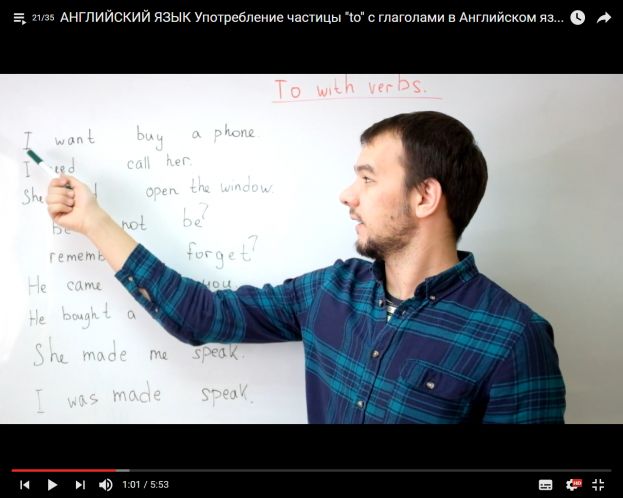 21/35 АНГЛИЙСКИЙ ЯЗЫК Употребление частицы "to" с глаголами в Английском яз...
To with verbs.
I want buy a phone.
I call her.
She open the window.
be not be?
forget?
He came you
He bought a
She made me speak.
I was made speak.
1:01 / 5:53
HD